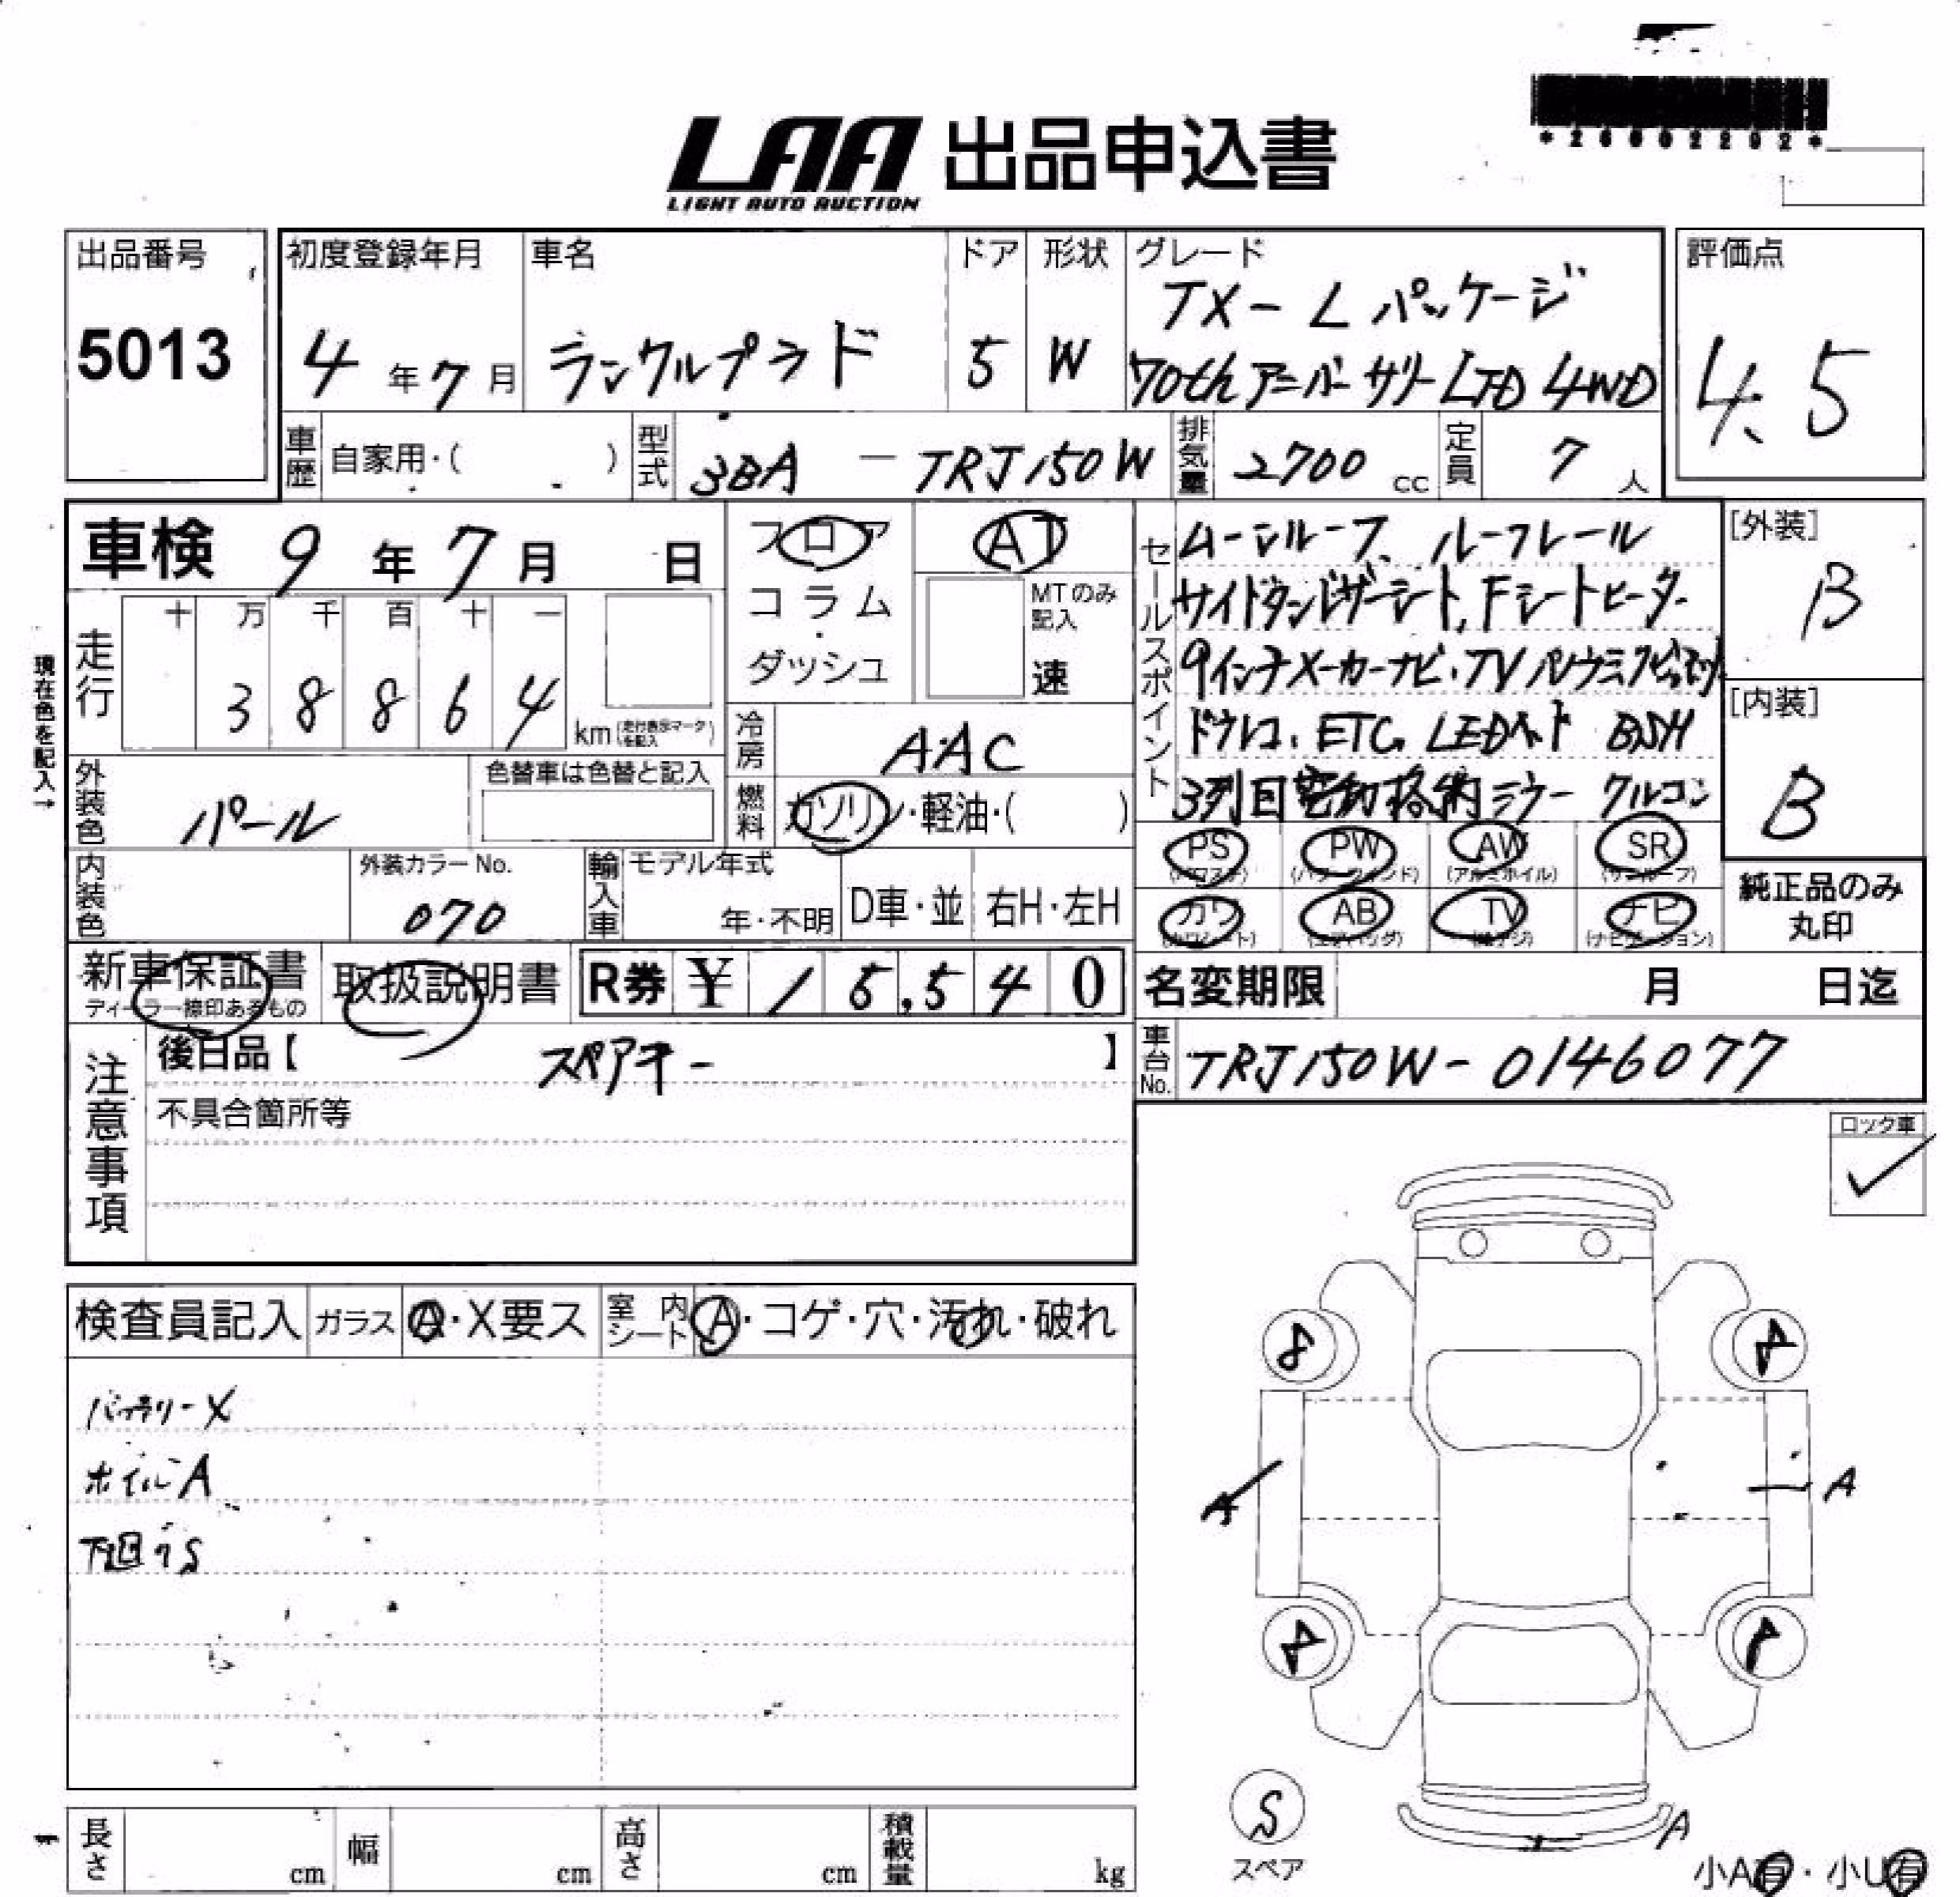 *26002202*
LAA 出品申込書
LIGHT AUTO AUCTION
出品番号
5013
初度登録年月
4年7月
車名
ランクルプラド
ドア
5
形状
W
グレード
TX-Lパッケージ
70thアニバーサリーLTD 4WD
評価点
4.5
車歴 自家用・( )
型式 3BA - TRJ150W
排気量 2700 cc
定員 7 人
車検 9年7月 日
フロア
コラム
・
ダッシュ
AT
MTのみ
記入
速
現在色を記入→
走行
十 万 千 百 十 一
3 8 8 6 4
km (走行表示マークを記入)
冷房 AAC
外装色 パール
色替車は色替と記入
燃料 ガソリン・軽油・( )
セールスポイント
ムーンルーフ、ルーフレール
サイドタンレザーシート,Fシートヒーター
9インチメーカーナビ・TV
ドラレコ, ETC, LEDヘッド BSM
3列目電動格納 ミラー クルコン
[外装]
B
[内装]
B
内装色
外装カラーNo.
070
輸入車
モデル年式
年・不明
D車・並
右H・左H
PS (パワステ)
PW (パワーウインド)
AW (アルミホイル)
SR (サンルーフ)
カワ (カワシート)
AB (エアバッグ)
TV
ナビ (ナビゲーション)
純正品のみ
丸印
新車保証書
ディーラー捺印あるもの
取扱説明書
R券 ¥ 15,540
名変期限 月 日迄
車台No. TRJ150W-0146077
注意事項
後日品【 スペアキー 】
不具合箇所等
ロック車
✓
検査員記入
ガラス A・X要ス
室内シート A・コゲ・穴・汚れ・破れ
バッテリーX
ホイルA
下回りS
A
A
A
S
スペア
小A有・小U有
長さ cm
幅 cm
高さ cm
積載量 kg